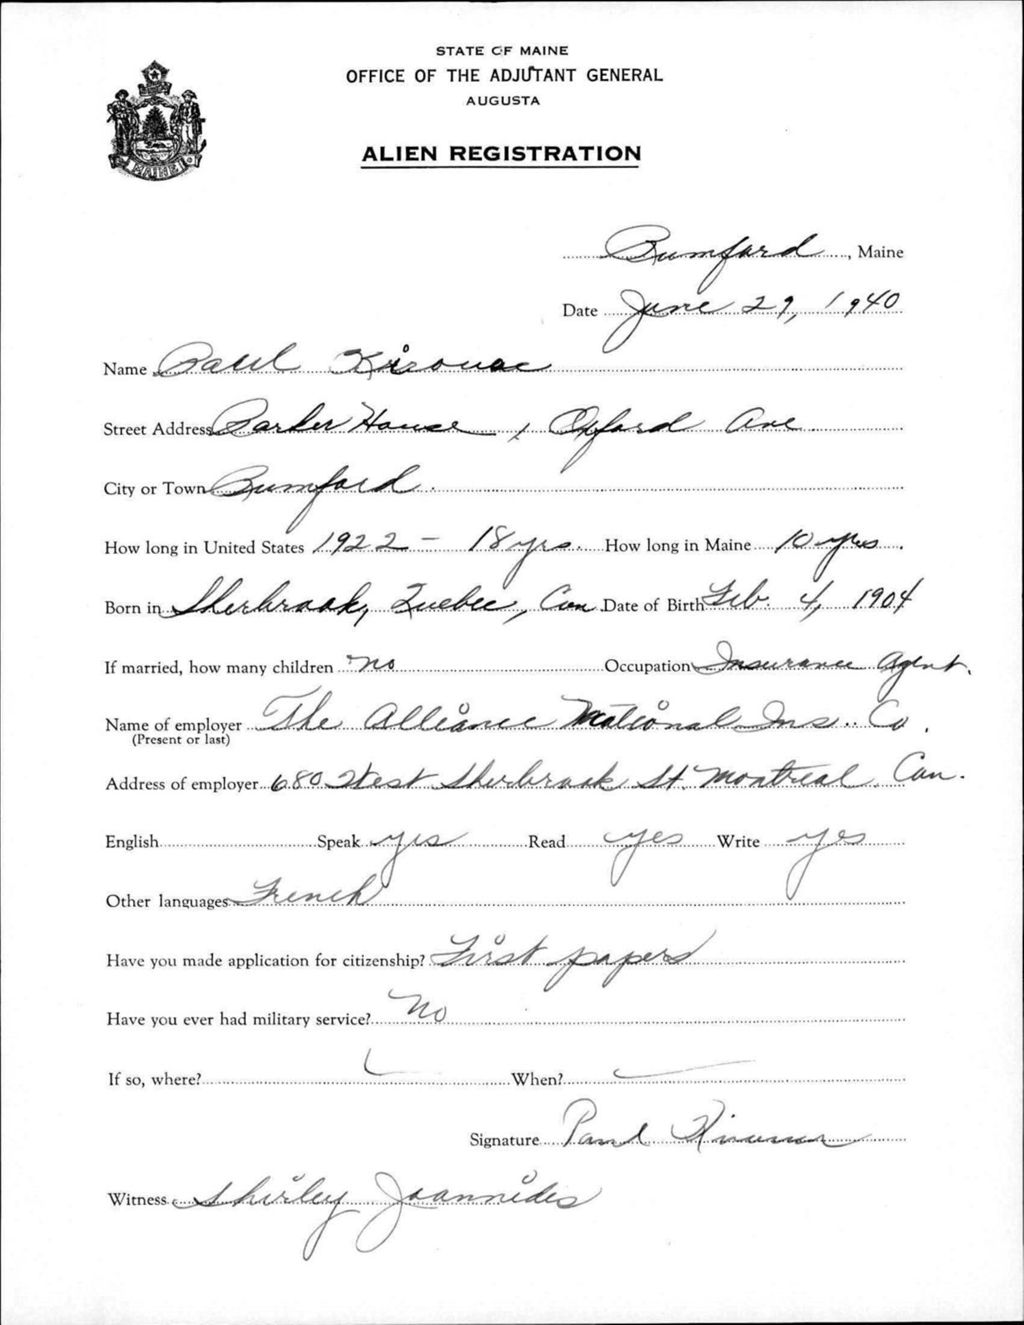 STATE OF MAINE
OFFICE OF THE ADJUTANT GENERAL
AUGUSTA
ALIEN REGISTRATION
MAINE
Rumford, Maine
Date June 29, 1940
Name Paul Kirouac
Street Address Barker House, Oxford Ave.
City or Town Rumford.
How long in United States 1922 - 18 yrs. How long in Maine 10 yrs.
Born in Sherbrook, Quebec, Can. Date of Birth Feb. 4, 1904
If married, how many children no Occupation Insurance Agent.
Name of employer The Alliance National Ins. Co.
(Present or last)
Address of employer 680 West Sherbrook St. Montreal, Can.
English Speak yes Read yes Write yes
Other languages French
Have you made application for citizenship? First papers
Have you ever had military service? No
If so, where? When?
Signature Paul Kirouac
Witness Shirley Joannides